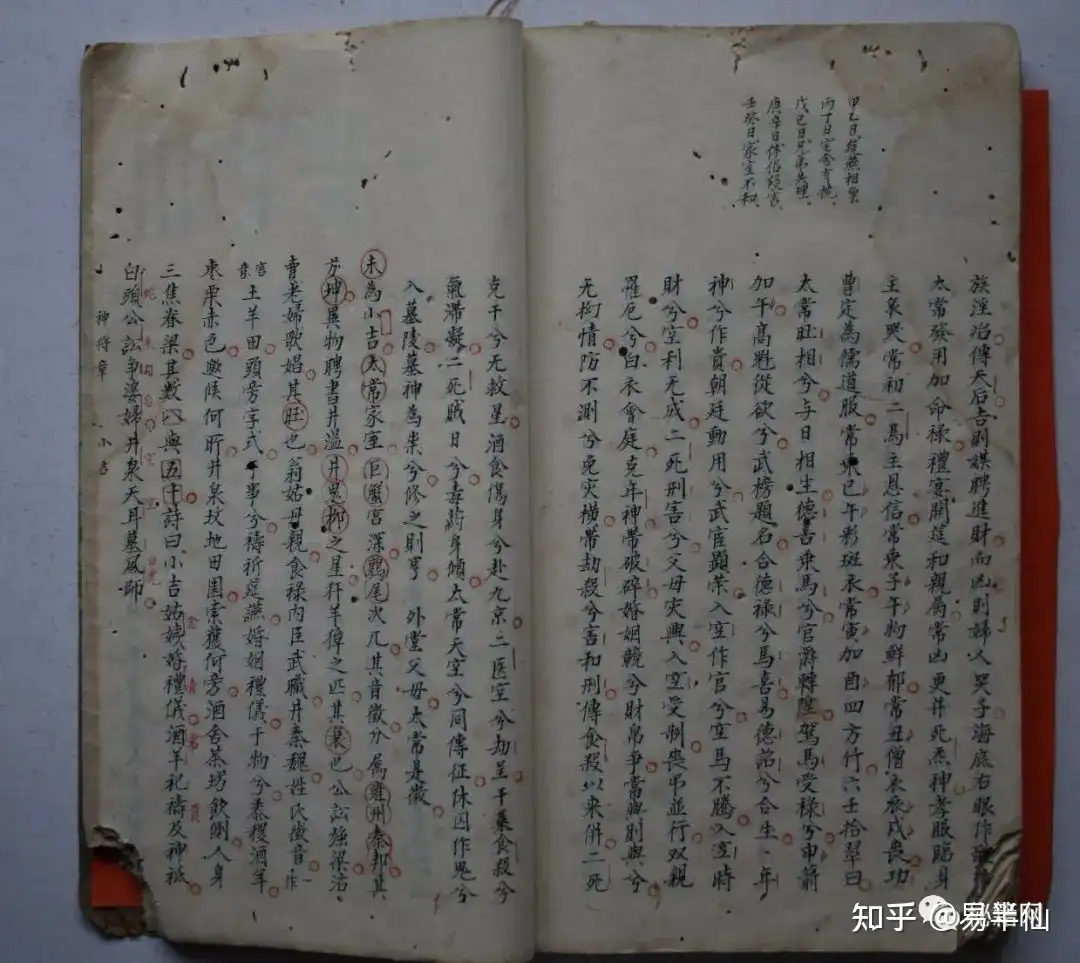 甲乙日筵燕相
丙丁日宅舍
戊己日兄弟失理
庚辛日伴侣
壬癸日家室不和
族淫冶傳天后吉則媒聘進財向凶則婦人哭子海底右眼作
太常發用加命祿禮宴開筵和親屬常凶更併死炁神孝服臨身
主矣興常初二馬主恩信常乘子午物鮮郁常丑僧衣辰戌喪功
曹定為儒道服常乘巳午彩斑衣常寅加酉四方竹六壬拾翠曰
太常旺相兮与日相生德喜乘馬兮官爵轉陞駕馬受祿兮申前
加午高尅從欲兮武榜題名合德祿兮馬喜易德詔兮合生、年
神兮作貴朝廷動用兮武宦顯榮入空作官兮空馬不騰入空時
財兮空利无成二死刑害兮父母灾興入空受制喪吊並行双親
罹厄兮白衣會庭克年神帶破碎婚姻競兮財帛爭常臨則興兮
无拘情防不測兮免灾橫帶劫殺兮害和刑傳食殺以來併二死
克干兮无救星酒食傷身兮赴九京二医空兮劫呈干乘食殺兮
氣滯凝二死賊日兮毒药身傾太常天空兮同傳征休囚作鬼兮
入墓陵墓神為祟兮修之則亨 外堂父母太常是徵
未為小吉太常家室巨蟹宮深鶉尾次兀其音徵分属雍州秦邦其
坤異物聘書井溫井鬼柳之星犴羊獐之匹其菓也公訟強梁沽
賣老婦歌娼其旺也翁姑母親食祿内臣武職井秦魏姓氏徵音作一
宮音土羊田頭旁字式干事兮禱祈筵燕婚姻禮儀干物兮黍稷酒羊
枣栗赤色欬候何所井泉坟地田園索獲何旁酒舍茶坊飲側人身
三焦脊梁其數八與五十詩曰小吉姑姨婚禮儀酒羊祀禱及神祇
白頭公訟爭婆婦井泉天耳墓風師
神將章 小吉
知乎 @易學半仙